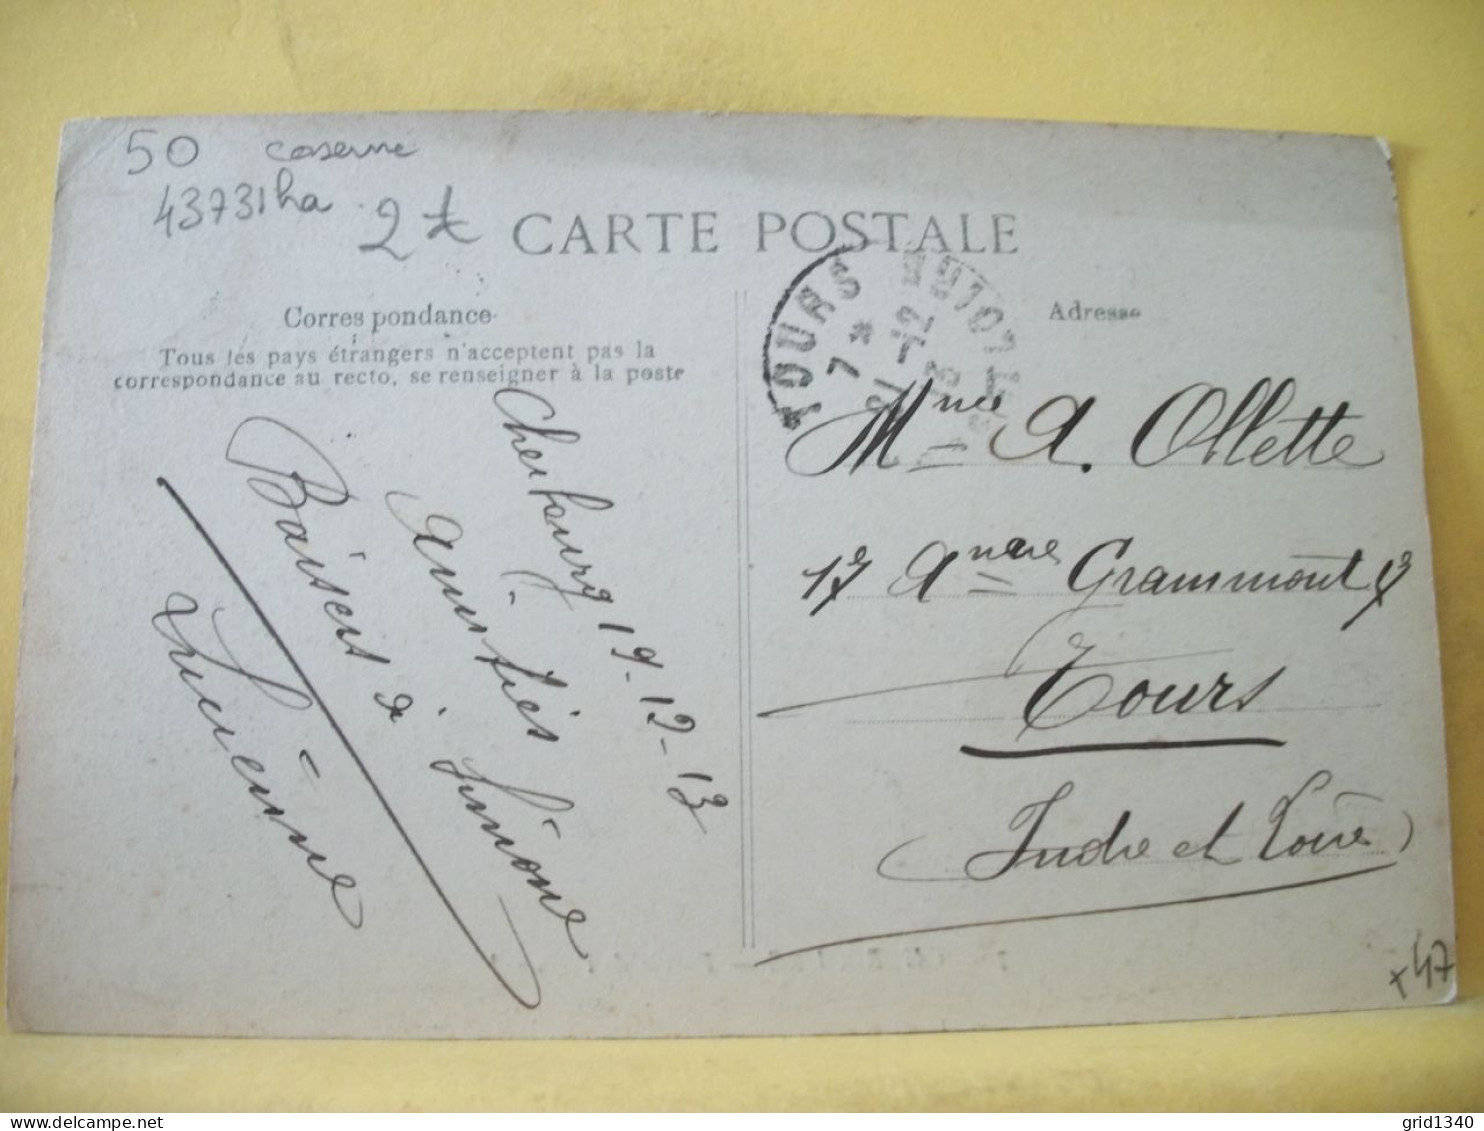 50 caserne
43731ha 2€
CARTE POSTALE
Correspondance
Tous les pays étrangers n'acceptent pas la
correspondance au recto, se renseigner à la poste
Cherbourg 19-12-13
Amitiés Simone
Baisers de
Lucienne
Adresse
TOURS
Mme A. Ollette
17 Anue Grammont 17
Tours
(Indre et Loire)
+47
grid1340